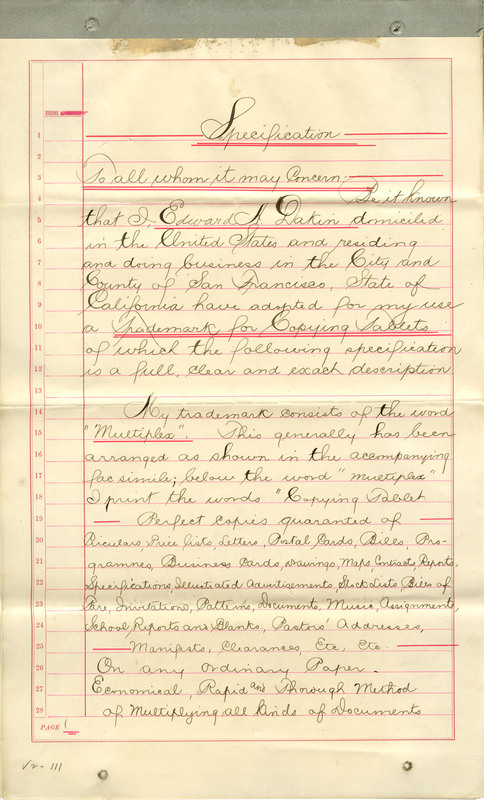 1 Specification
2
3 To all whom it may Concern:
4 Be it known
5 that I, Edward A. Dakin domiciled
6 in the United States and residing
7 and doing business in the City and
8 County of San Francisco, State of
9 California have adopted for my use
10 a Trademark for Copying Tablets
11 of which the following specification
12 is a full, clear and exact description
13
14 My trademark consists of the word
15 "Multiplex". This generally has been
16 arranged as shown in the acompanying
17 fac simile; below the word "Multiplex"
18 I print the words "Copying Tablet
19 — Perfect copies quaranted of
20 Circulars, Price lists, Letters, Postal Cards, Bills, Pro-
21 grammes, Business Cards, Drawings, Maps, Contracts, Reports,
22 Specifications, Illustrated Advertisements, Stock Lists, Bills of
23 Fare, Invitations, Patterns, Documents, Music, Assignments,
24 School, Reports and Blanks, Pastors' Addresses,
25 — Manifests, Clearances, Etc, Etc. —
26 On any Ordinary Paper.
27 Economical, Rapid and Thorough Method
28 of Multiplying all kinds of Documents
PAGE 1
V2-111